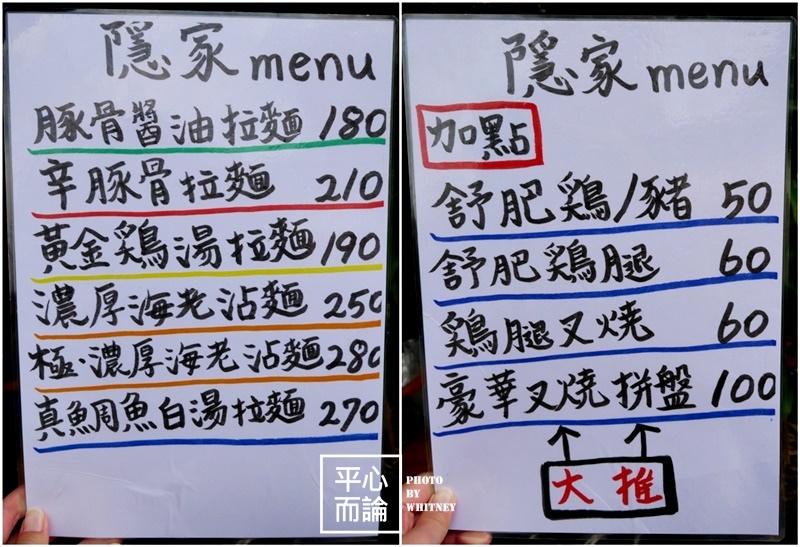 隱家 menu
豚骨醬油拉麵 180
辛豚骨拉麵 210
黃金鶏湯拉麵 190
濃厚海老沾麵 250
極·濃厚海老沾麵 280
真鯛魚白湯拉麵 270
平心
而論
隱家 menu
加點
舒肥鶏/豬 50
舒肥鶏腿 60
鶏腿叉燒 60
豪華叉燒拼盤 100
大推
PHOTO
BY
WHITNEY